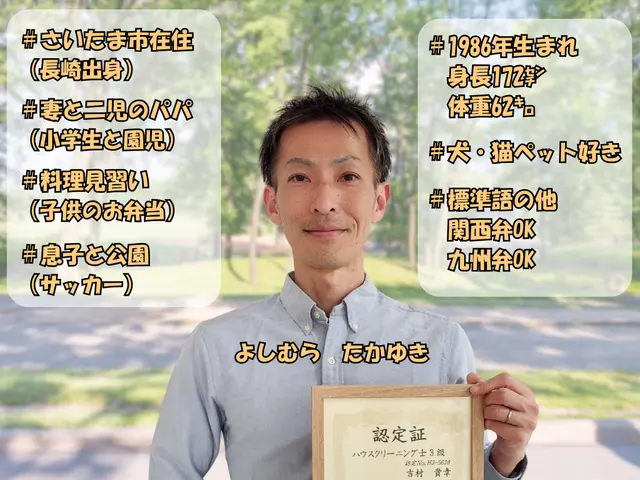 #さいたま市在住
（長崎出身）
#妻と二児のパパ
（小学生と園児）
#料理見習い
（子供のお弁当）
#息子と公園
（サッカー）
#1986年生まれ
身長172㌢
体重62㌔
#犬・猫ペット好き
#標準語の他
関西弁OK
九州弁OK
よしむら　たかゆき
認定証
ハウスクリーニング士3級
認定No.H3-5628
吉村　貴幸